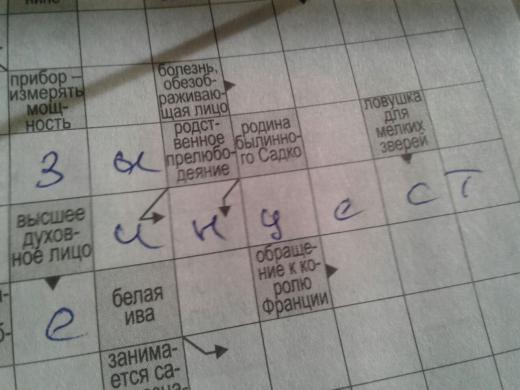 прибор –
измерять
мощ-
ность
болезнь,
обезоб-
раживаю-
щая лицо
родст-
венное
прелюбо-
деяние
родина
былинно-
го Садко
ловушка
для
мелких
зверей
з ы
высшее
духов-
ное лицо
и н ц е с т
е
белая
ива
обраще-
ние к ко-
ролю
Франции
занима-
ется са-